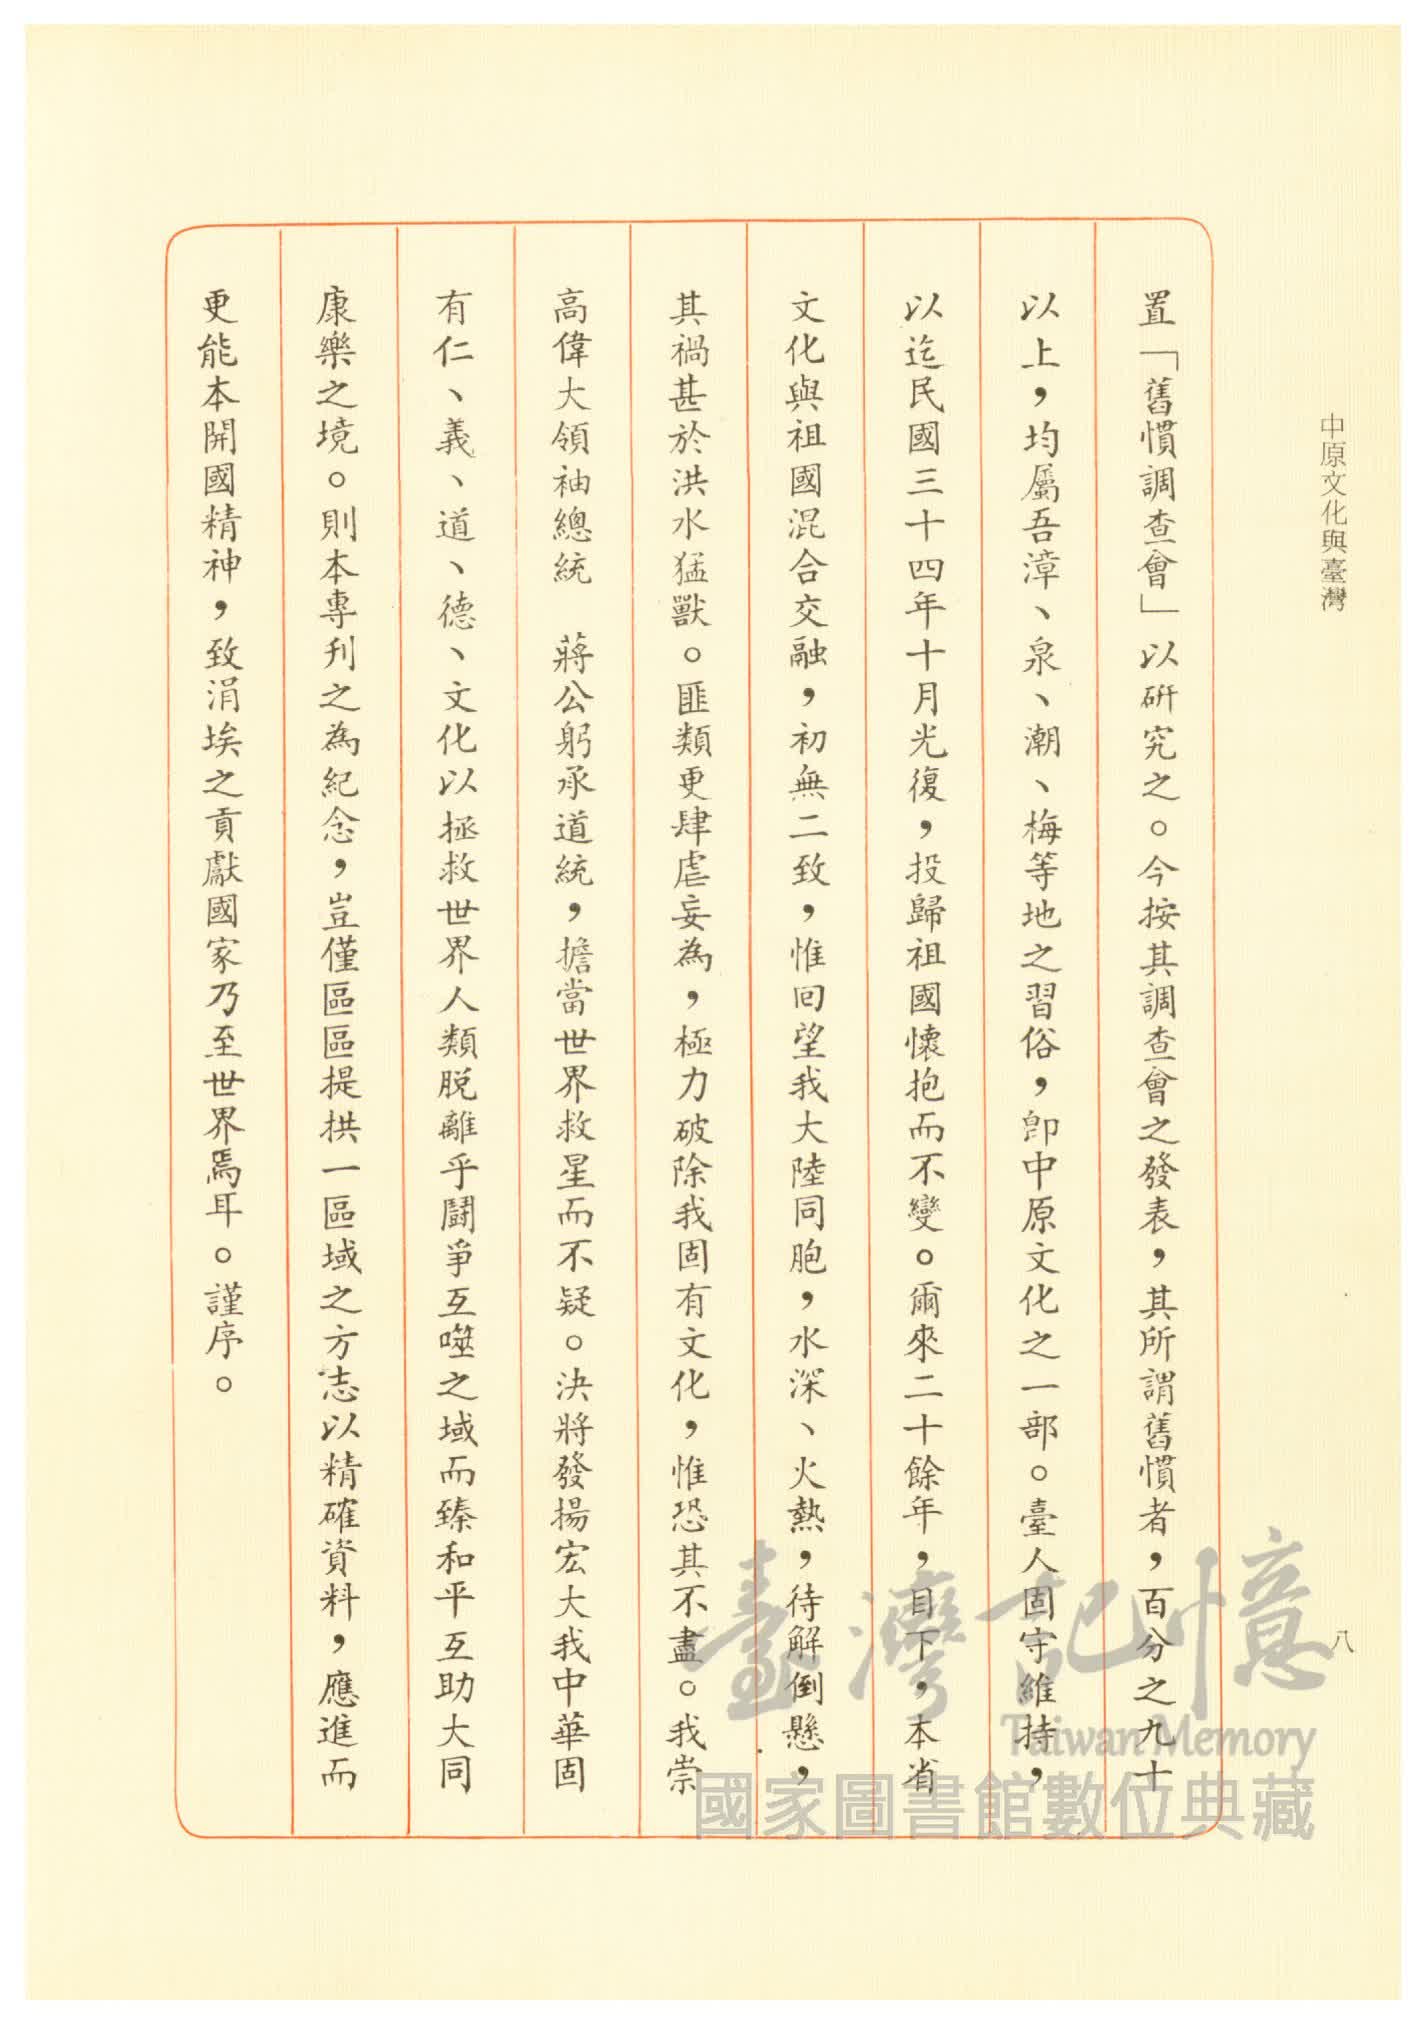 中原文化與臺灣
八
置「舊慣調查會」以研究之。今按其調查會之發表，其所謂舊慣者，百分之九十
以上，均屬吾漳、泉、潮、梅等地之習俗，卽中原文化之一部。臺人固守維持，
以迄民國三十四年十月光復，投歸祖國懷抱而不變。爾來二十餘年，目下，本省
文化與祖國混合交融，初無二致，惟回望我大陸同胞，水深、火熱，待解倒懸，
其禍甚於洪水猛獸。匪類更肆虐妄為，極力破除我固有文化，惟恐其不盡。我崇
高偉大領袖總統　蔣公躬承道統，擔當世界救星而不疑。決將發揚宏大我中華固
有仁、義、道、德、文化以拯救世界人類脫離乎鬪爭互噬之域而臻和平互助大同
康樂之境。則本專刋之為紀念，豈僅區區提拱一區域之方志以精確資料，應進而
更能本開國精神，致涓埃之貢獻國家乃至世界焉耳。謹序。
臺灣記憶
Taiwan Memory
國家圖書館數位典藏